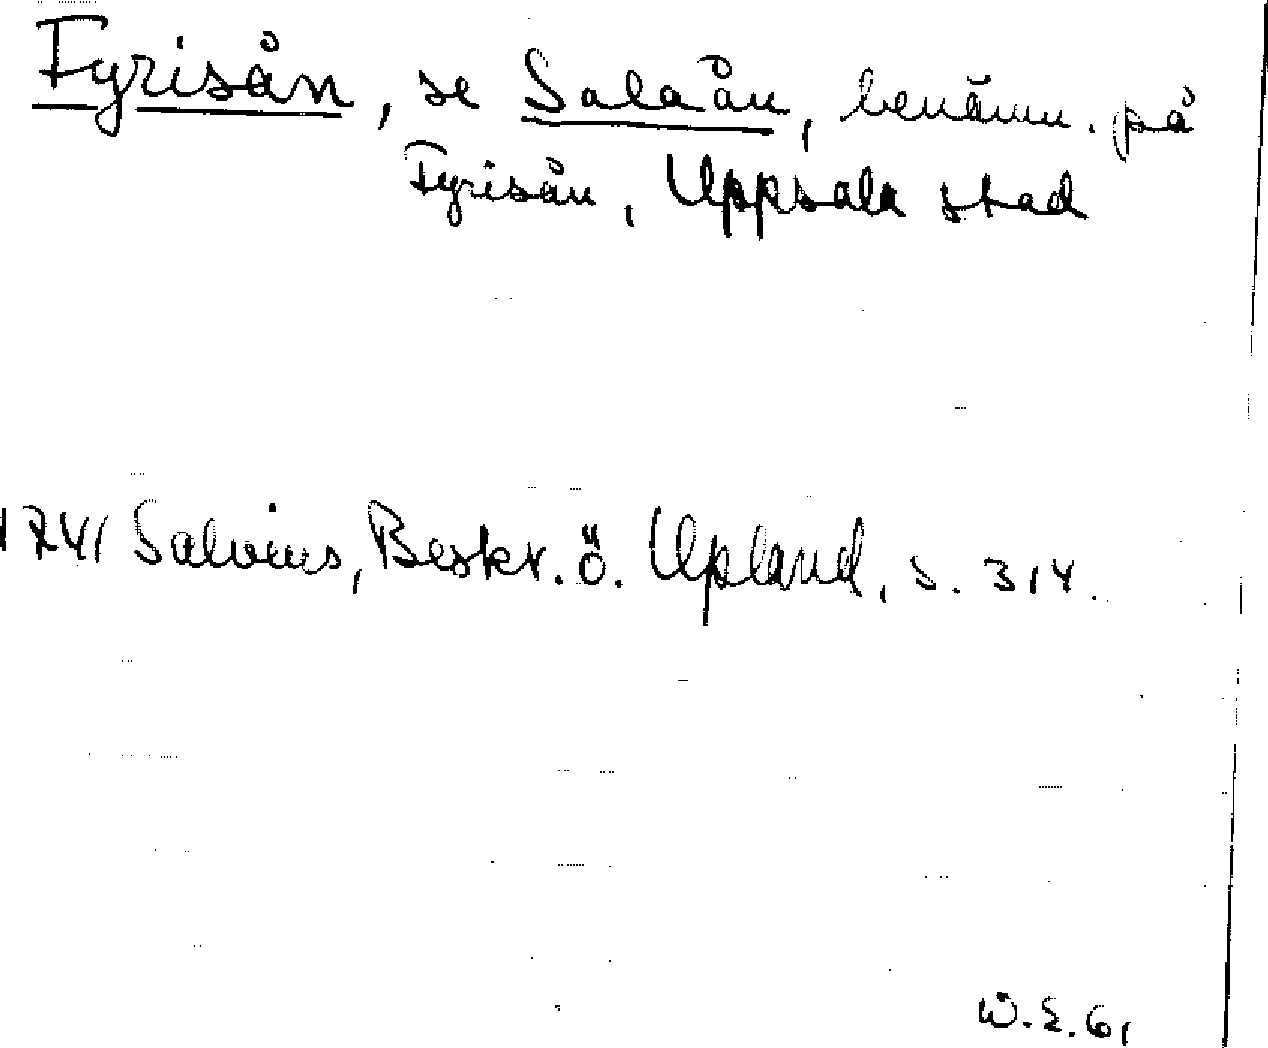 Fyrisån, se Salaån, benämn. på
Fyrisån, Uppsala stad
1741 Salvius, Beskr. ö. Upland, s. 314.
W.E. 61